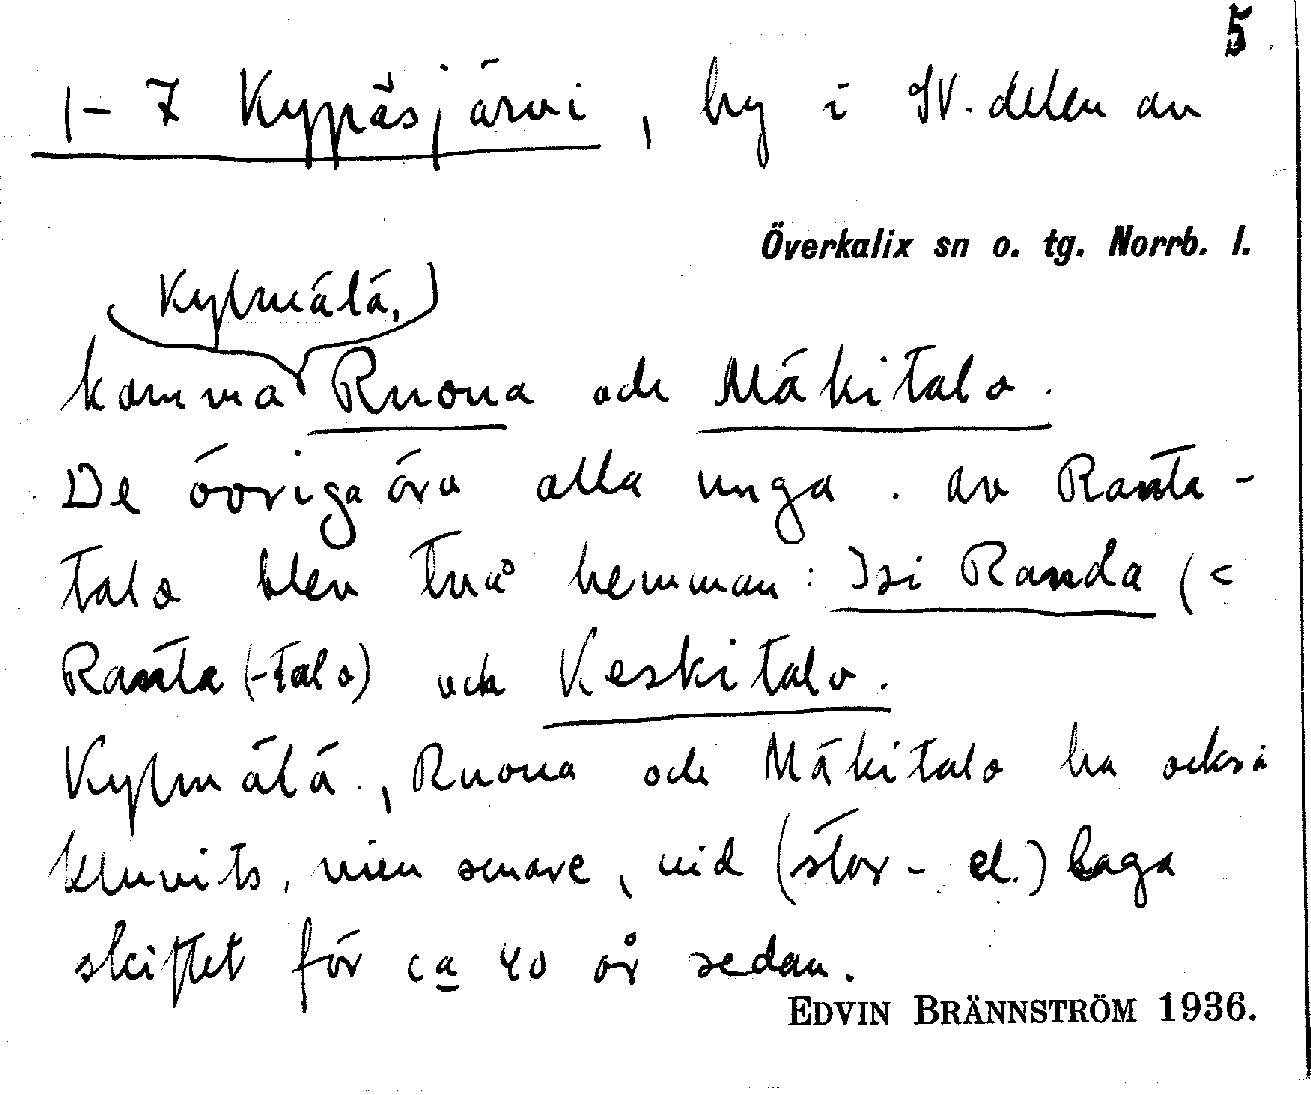 5
1-7 Kypäsjärvi, by i SV. delen av
Överkalix sn o. tg. Norrb. l.
Kylmälä,
komma Ruona och Mäkitalo.
De övriga äro alla unga. av Ranta-
talo blev två hemman: Isi Randa (<
Ranta (-talo) och Keskitalo.
Kylmälä, Ruona och Mäkitalo ha också
kluvits, men senare, vid (stor- el.) laga
skiftet för ca 40 år sedan.
EDVIN BRÄNNSTRÖM 1936.